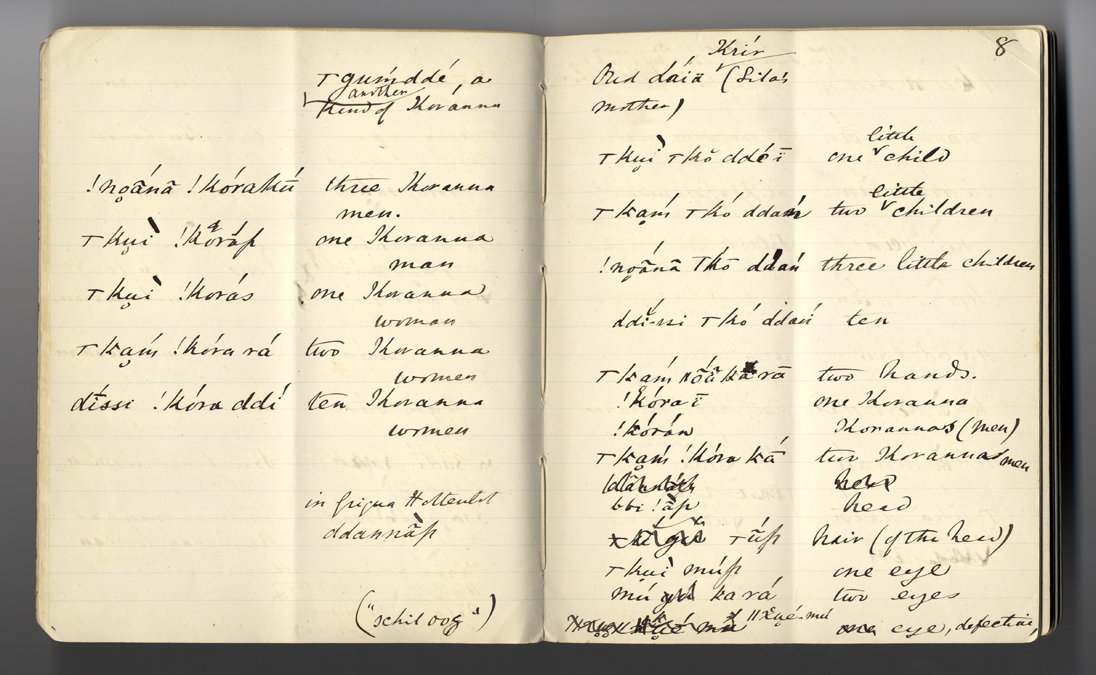 Tgúmddé, a
another
kind of Koránna
!ngãnã !kórakú three Koranna
men.
Tkuì !kóráp one Koranna
man
Tkuì !korás one Koranna
woman
Tkam !kóra rá two Koranna
women
díssi !kóra ddí ten Koranna
women
in Griqua Hottentot
ddannãp
("schil oog")
8
Oud Láia (Sila's
mother)
Tkuì Tkŏ ddéī one little child
Tkam Tkó ddam two little children
!ngãnã Tkŏ ddań three little children
ddí-ssi Tkó ddań ten
Tkám kara two hands.
!kóra-ī one Koranna
!kórán Korannas (men)
Tkam !kóra ká two Korannas men
bbi !ãp head
Túp hair (of the head)
Tkuì múp one eye
mú kará two eyes
eye, defective,